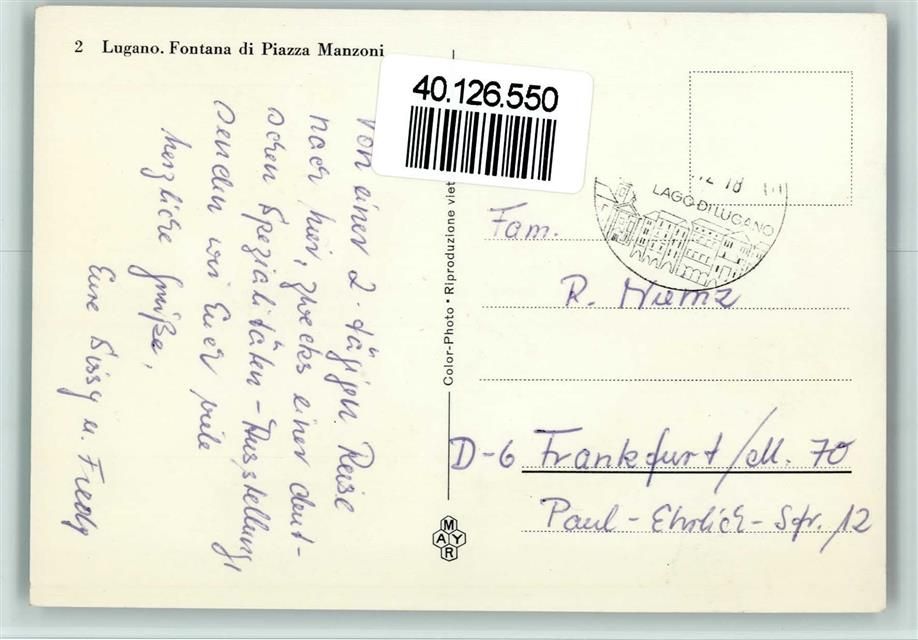 2 Lugano. Fontana di Piazza Manzoni
40.126.550
Von einer 2-tägigen Reise
nach hier, zwecks einer deut-
schen Spezialitäten-Ausstellung,
senden wir Euch viele
herzliche Grüße,
Eure Sissy u. Fredy
Color-Photo • Riproduzione viet
MAYR
LAGO DI LUGANO
Fam.
R. Niemz
D-6 Frankfurt/M. 70
Paul-Ehrlich-Str. 12